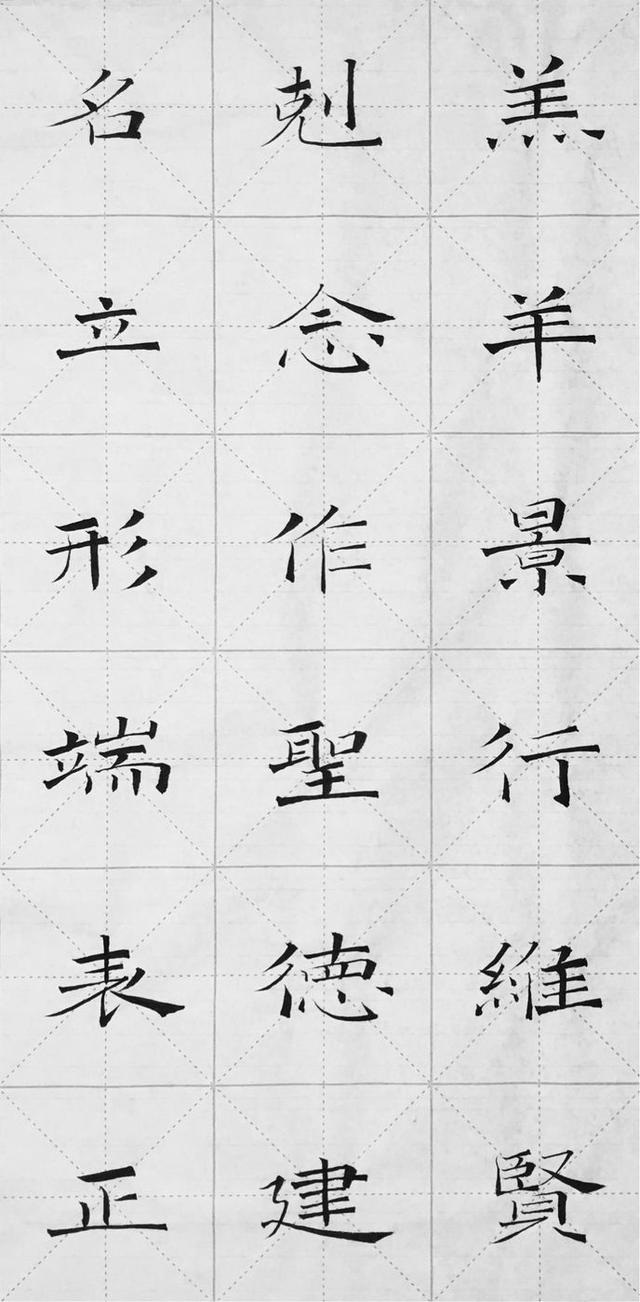 羔羊景行維賢
剋念作聖德建
名立形端表正